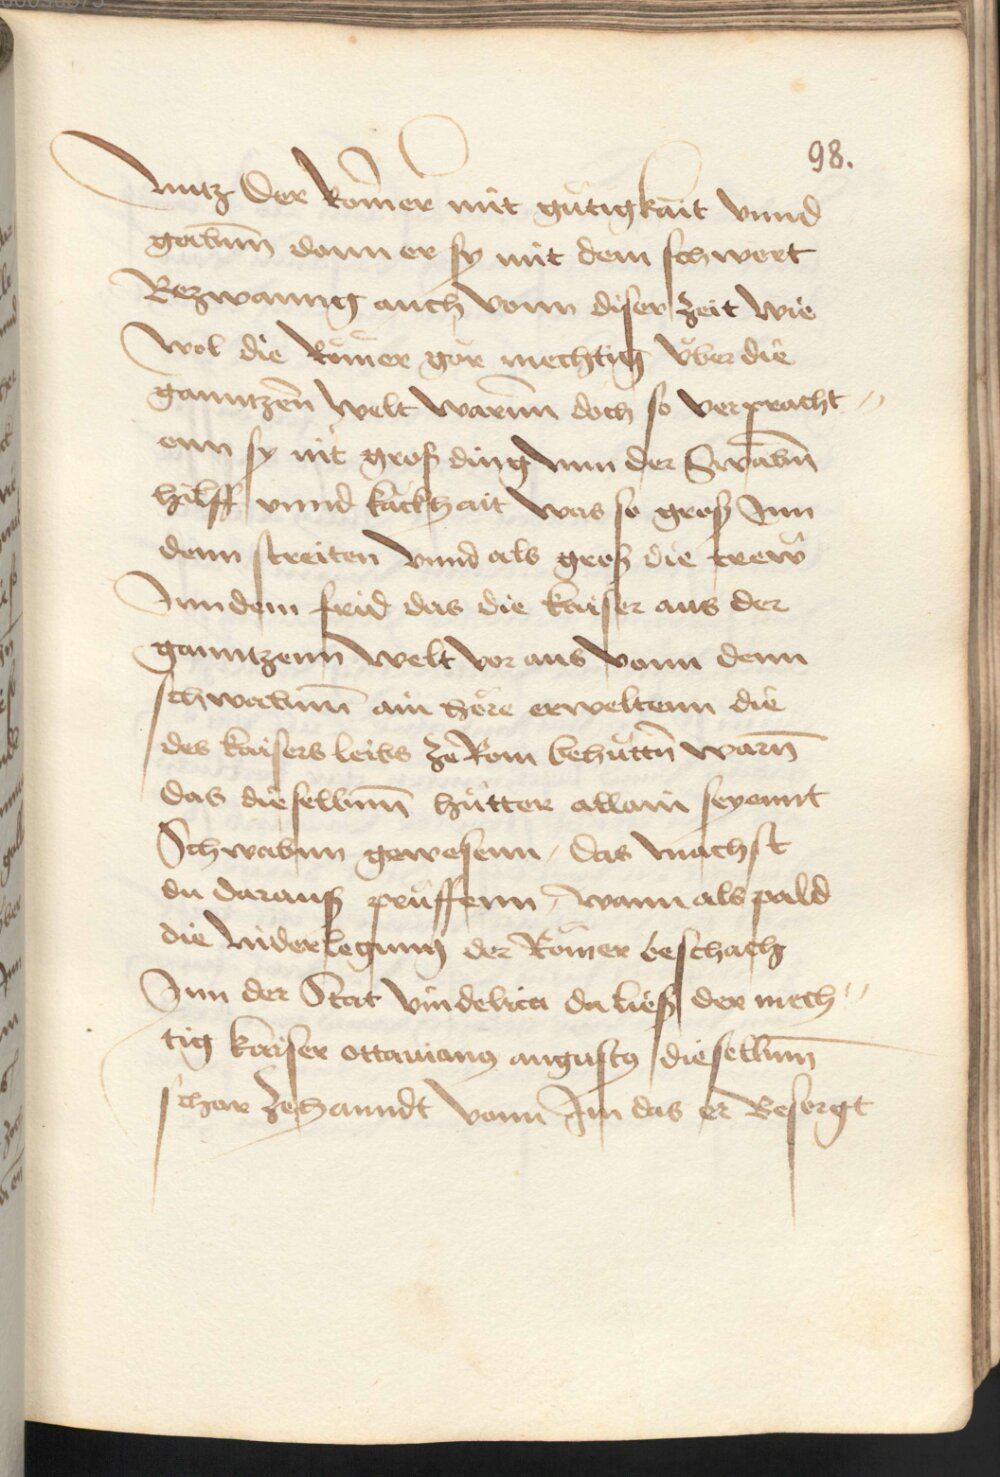 98.
Nutz Der Römer mit gütigkait vnnd
gabnn̄ dann er sy mit dem schwert
Bezwanng auch vonn diser zeit wie
wol die Römer gar mechtig v̈ber die
ganntzen̄ welt warnn̄ doch so verpracht〃
enn sy nit groß ding nun der Swäbn̄
hilff vnnd käckhait was so groß Inn
denn streiten vnnd als groß die trew
Inn dem frid das die kaiser aus der
ganntzenn welt vor aus vonn denn
schwabnn̄ ain Höre erweltenn die
des kaisers leibs ze Rom behüttn̄ warn̄
das dieselbnn̄ hütter allain seyennt
Schwabnn gewesenn / das machst
du darauß prüffenn / wann als pald
die niderlegung der Römer beschach
Inn der Stat vindelica da ließ der mech〃
tig kaiser ottauianus augustus dieselbnn̄
schar zehanndt vonn Im das er Besorgt